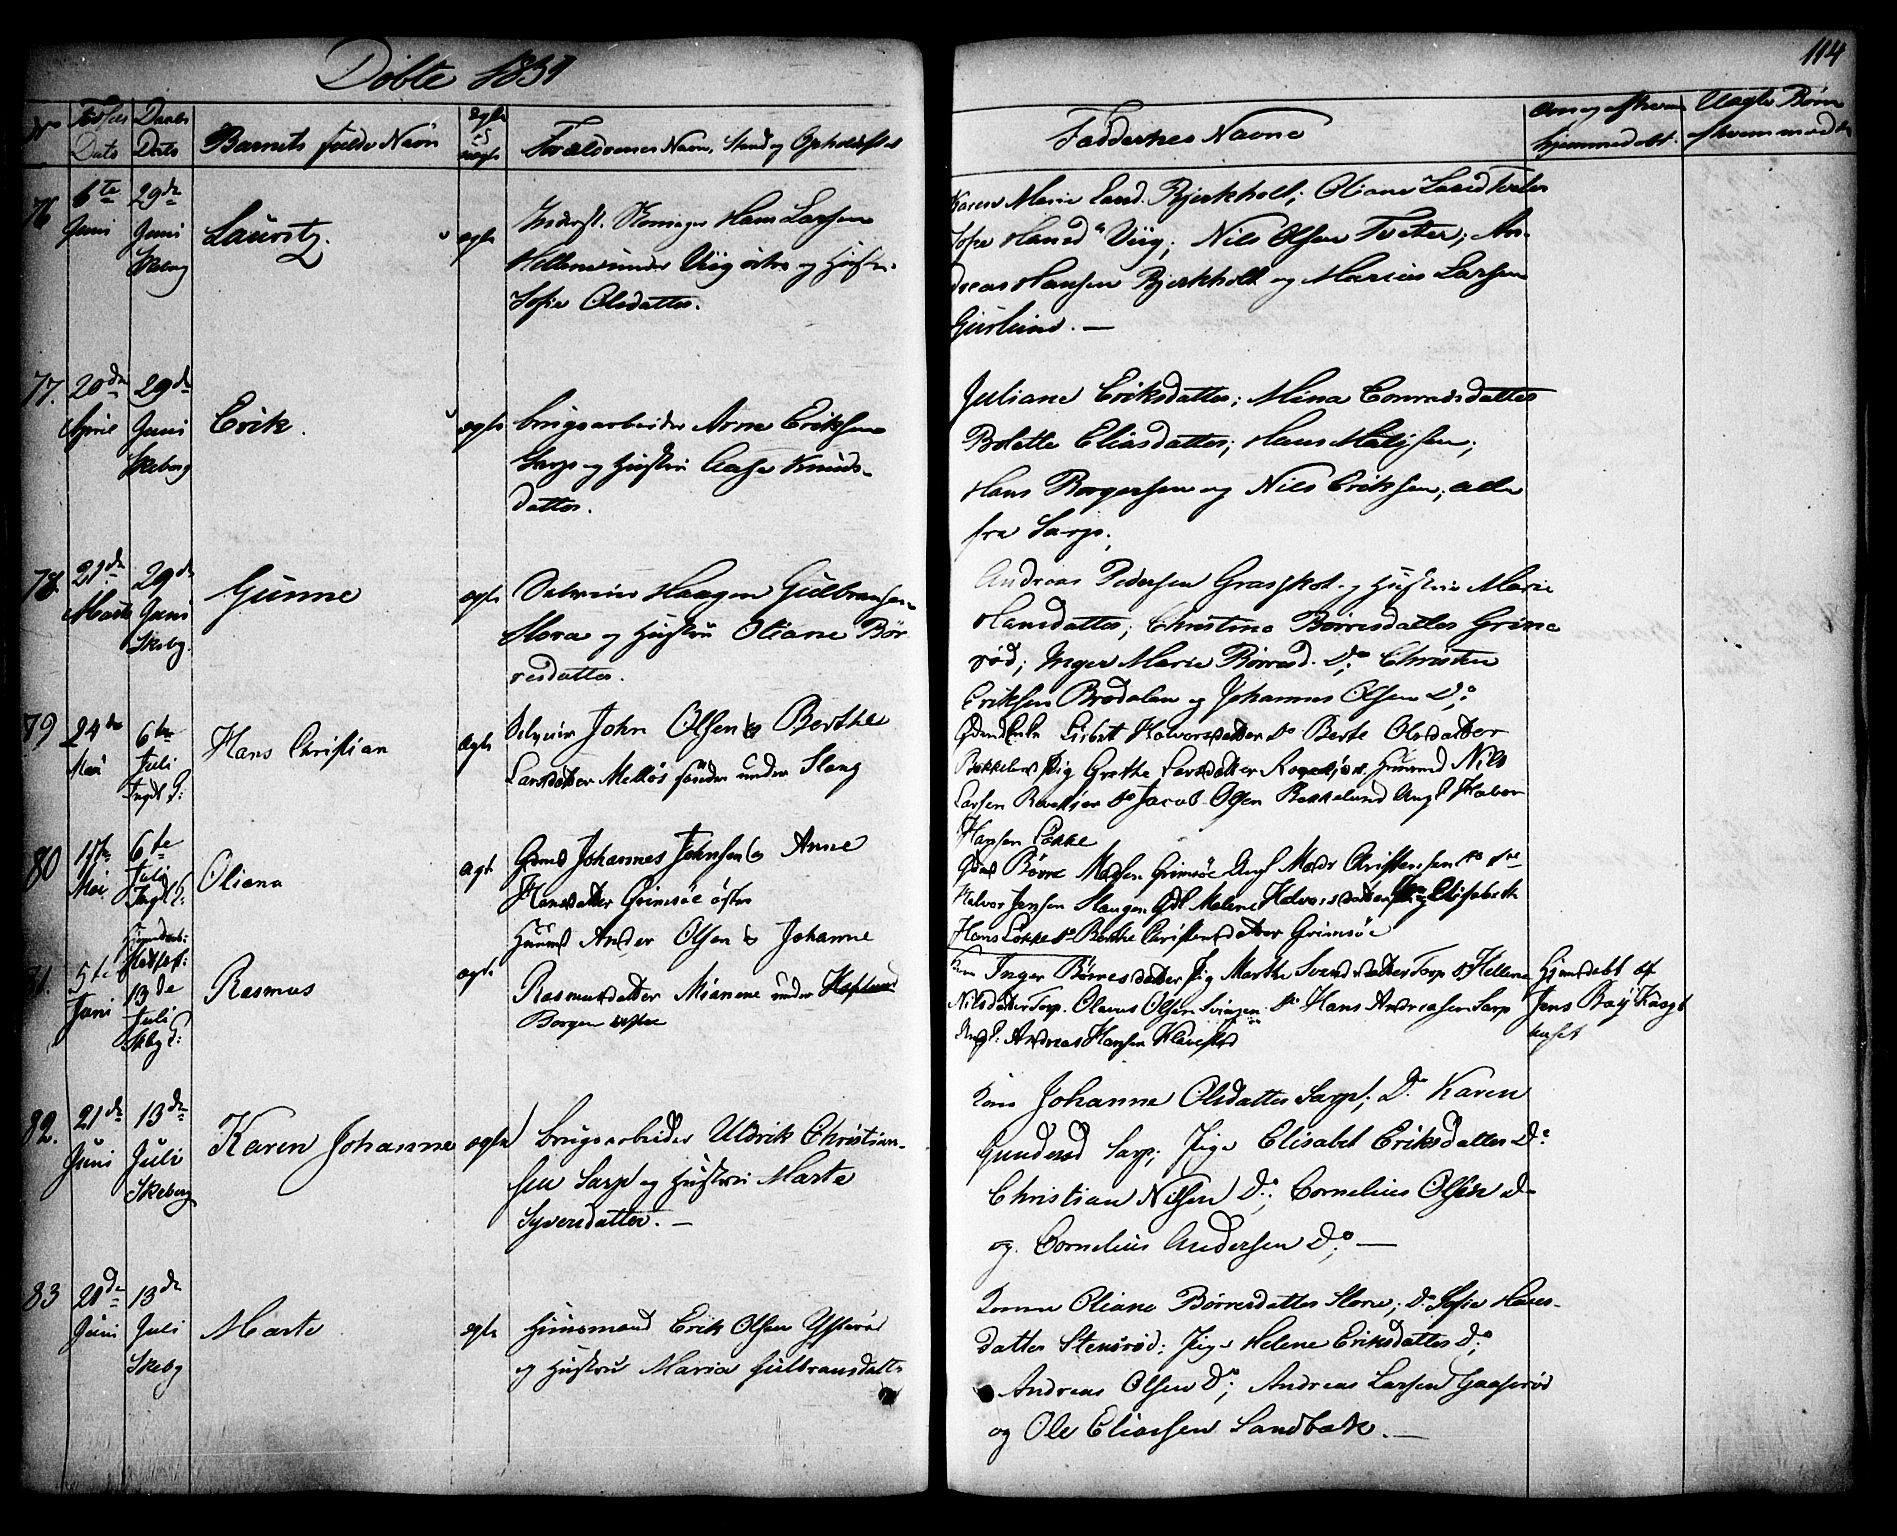 114
Døbte 1851
No
Fødsels
Dato
Daabs
Dato
Barnets fulde Navn
ægte
uægte
Forældrenes Navn, Stand og Opholdssted
Faddernes Navne
Om og af hvem
hjemmedøbt
Uægte Børn
af hvem meldt
76
6te
Juni
29de
Juni
Skeberg
Lauritz.
ægte
Hans Larsen
under Viig østre og Hustru
Sofie Olsdatter.
Karen Marie Land. Bjerkholt; Oliane
Sofie Hansd. Viig; Nils Olsen Tveter; An-
dreas Hansen Bjerkholt og Marius Larsen
77.
20de
April
29de
Juni
Skeberg
Erik.
ægte
brugsarbeider Arne Eriksen
Sarp og Hustru Aase Knuds-
datter.
Juliane Eriksdatter; Mina Conradsdatter
Bolette Eliasdatter; Hans Mathisen;
Hans Borgersen og Nils Eriksen, alle
fra Sarp.
78.
21de
Marts
29de
Juni
Skebg.
Gunne
ægte
Selveier Haagen Gulbransen
Slora og Hustru Oliane Bør-
resdatter.
Andreas Pedersen og Hustru Marie
Hansdatter; Christine Børresdatter Grime
rød; Inger Marie Børresd. Do; Christen
Eriksen Brødalen og Johannes Olsen Do;
79
24de
Mai
6te
Juli
Ingdl:
Hans Christian
ægte
Selveier John Olsen & Berthe
Larsdatter Melløs søndre under Slang
Lisbet Halvorsdatter Do Berte Olsdatter
Bekkelund Pig Grethe Larsdatter Husmd Nils
Larsen Do Jacob Olsen Bekkelund Ungk Halvor
Hansen Løkke
80
17de
Mai
6te
Juli
Ingdl:
Oliana
ægte
Gmd Johannes Johnsen & Anne
Hansdatter Grimsøe østre
Gmd Børre Madsen Grimsøe Ungk Mads Christensen Do
Halvor Jensen Slangen Malene Halvorsdatter Elisabeth
Hans Løkke Do Berthe Christensdatter Grimsøe
81.
5te
Juni
13de
Juli
Skbg:
Rasmus
ægte
Huusmd Ander Olsen & Johanne
Rasmusdatter under
Borgen østre
Inger Børresdatter Pig Marthe Svendsdatter Torp Do Hellene
Nilsdatter Torp. Olaves Olsen Do Hans Andreasen Sarp
Ungk: Andreas Hansen Klavestad
Hjemdøbt af
Jens
huset
82.
21de
Juni
13de
Juli
Skeberg
Karen Johanne
ægte
brugsarbeider Uldrik Christian-
sen Sarp og Hustru Marte
Syversdatter. —
Kone Johanne Olsdatter Sarp; Do Karen
Gundersd Sarp; Pige Elisabet Eriksdatter Do:
Christian Nilsen Do; Cornelius Olsen Do
og Cornelius Andersen Do; —
83
21de
Juni
13de
Juli
Skebg
Marte
ægte
Huusmand Erik Olsen
og Hustru Maria Gulbransdatter
Kone Oliane Børresdatter Slora; Do Sofie Hans-
datter Stensrød; Pige Helene Eriksdatter Do;
Andreas Olsen Do; Andreas Larsen Gaaserød
og Ole Eliassen Sandbæk. —